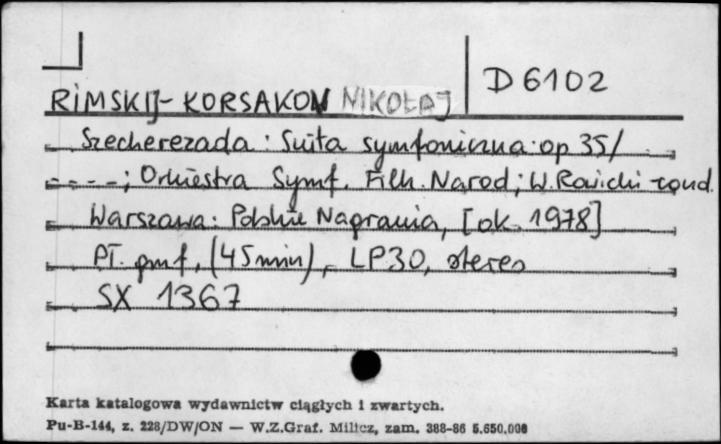 D 6102
RIMSKIJ-KORSAKOW NIKOŁAJ
Szecherezada : Suita symfoniczna : op 35/
- - - - ; Orkiestra Symf. Filh. Narod ; W. Rowicki - cond.
Warszawa : Polskie Nagrania, [ok. 1978]
Pł. gmf, (45 min), - LP30, stereo
SX 1367
Karta katalogowa wydawnictw ciągłych i zwartych.
Pu-B-144, z. 228/DW/ON — W.Z.Graf. Milicz, zam. 388-86 5.650.000